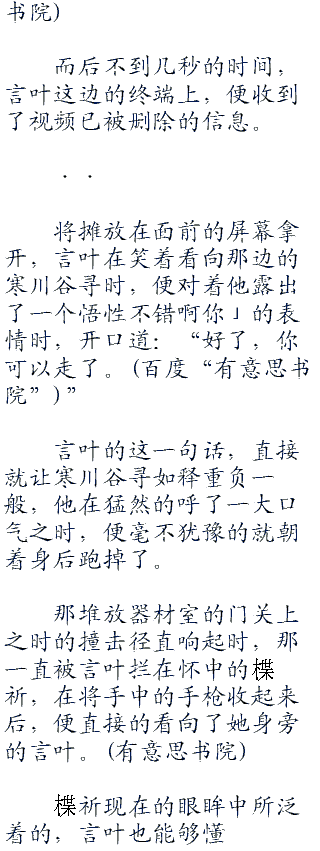 书院)
而后不到几秒的时间，
言叶这边的终端上，便收到
了视频已被删除的信息。
．．
将摊放在面前的屏幕拿
开，言叶在笑着看向那边的
寒川谷寻时，便对着他露出
了一个悟性不错啊你」的表
情时，开口道：“好了，你
可以走了。(百度“有意思书
院”)”
言叶的这一句话，直接
就让寒川谷寻如释重负一
般，他在猛然的呼了一大口
气之时，便毫不犹豫的就朝
着身后跑掉了。
那堆放器材室的门关上
之时的撞击径直响起时，那
一直被言叶拦在怀中的楪
祈，在将手中的手枪收起来
后，便直接的看向了她身旁
的言叶。(有意思书院)
楪祈现在的眼眸中所泛
着的，言叶也能够懂